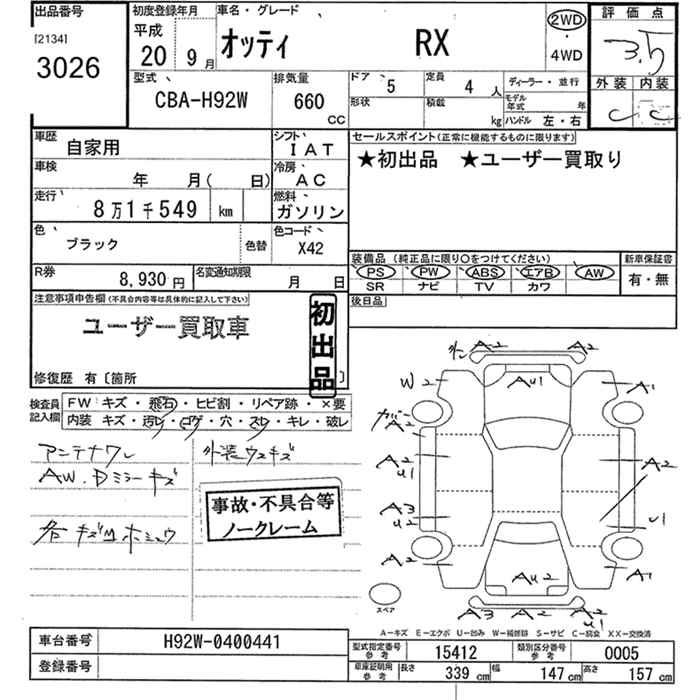 出品番号
[2134]
3026
初度登録年月
平成
20年 9月
車名・グレード
オッティ RX
2WD
・
4WD
評価点
3.5
外装 内装
C C
型式
CBA-H92W
排気量
660 CC
ドア 5
定員 4人
形状
積載 kg
ディーラー・並行
モデル年式 年
ハンドル 左・右
車歴 自家用
シフト IAT
車検 年 月( 日)
冷房 AC
走行 8万1千549 km
燃料 ガソリン
色 ブラック 色替
色コード X42
R券 8,930円
名変通知期限 月 日
セールスポイント(正常に機能するものに限ります)
★初出品 ★ユーザー買取り
装備品(純正品に限り〇をつけてください)
PS PW ABS エアB AW
SR ナビ TV カワ
新車保証書
有・無
後日品
注意事項申告欄(不具合内容等は具体的に記入して下さい)
ユーザー買取車
初出品
修復歴 有〔箇所 〕
検査員記入欄
FW キズ・飛石・ヒビ割・リペア跡・×要
内装 キズ・汚レ・コゲ・穴・スレ・キレ・破レ
アンテナワレ
外装ウスキズ
AW.Dミラーキズ
各キズ凹ホシュウ
事故・不具合等
ノークレーム
A2 A2
W2 AU1 A1
A2
A2 U1 A2
A3 U2 U1
A2 A1
AU2
A3 A2 A2 U1
スペア
A－キズ E－エクボ U－凹み W－補修跡 S－サビ C－腐食 XX－交換済
車台番号 H92W-0400441
登録番号
型式指定番号 参考 15412
類別区分番号 参考 0005
車庫証明用 参考 長さ 339 cm 幅 147 cm 高さ 157 cm